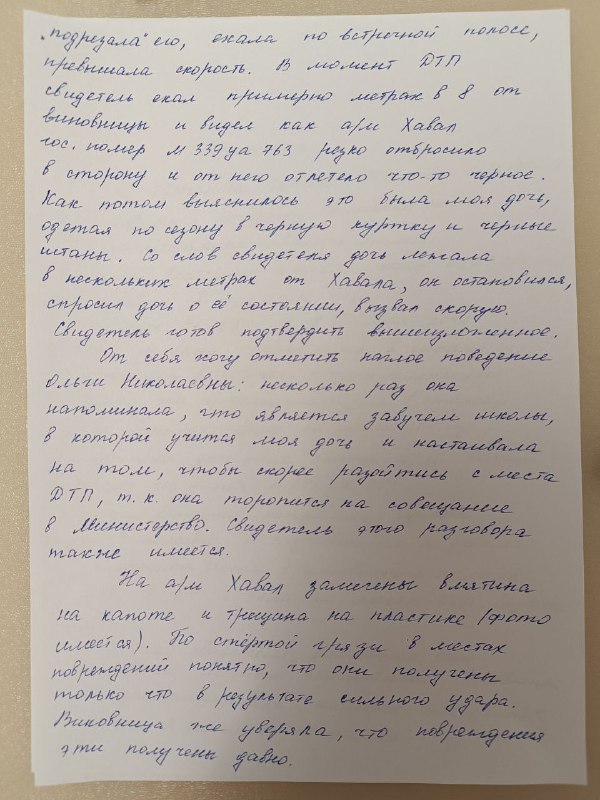 „подрезала" его, ехала по встречной полосе,
превышала скорость. В момент ДТП
свидетель ехал примерно метрах в 8 от
виновницы и видел как а/м Хавал
гос. номер м 339 уа 763 резко отбросило
в сторону и от него отлетело что-то черное.
Как потом выяснилось это была моя дочь,
одетая по сезону в черную куртку и черные
штаны. Со слов свидетеля дочь лежала
в нескольких метрах от Хавала, он остановился,
спросил дочь о её состоянии, вызвал скорую.
Свидетель готов подтвердить вышеизложенное.
От себя хочу отметить наглое поведение
Ольги Николаевны: несколько раз она
напоминала, что является завучем школы,
в которой учится моя дочь и настаивала
на том, чтобы скорее разойтись с места
ДТП, т.к. она торопится на совещание
в Министерство. Свидетель этого разговора
также имеется.
На а/м Хавал замечены вмятина
на капоте и трещина на пластике (фото
имеется). По стёртой грязи в местах
повреждений понятно, что они получены
только что в результате сильного удара.
Виновница же уверяла, что повреждения
эти получены давно.